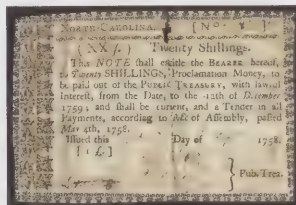 NORTH-CAROLINA. [No. ]
(XX s.) Twenty Shillings.
This NOTE shall entitle the BEARER hereof,
to Twenty SHILLINGS, Proclamation Money, to
be paid out of the PUBLIC TREASURY, with lawful
Interest, from the Date, to the 12th of December
1759; and shall be current, and a Tender in all
Payments, according to Act of Assembly, passed
May 4th, 1758.
Issued this Day of 1758.
[1 £.]
Pub. Trea.